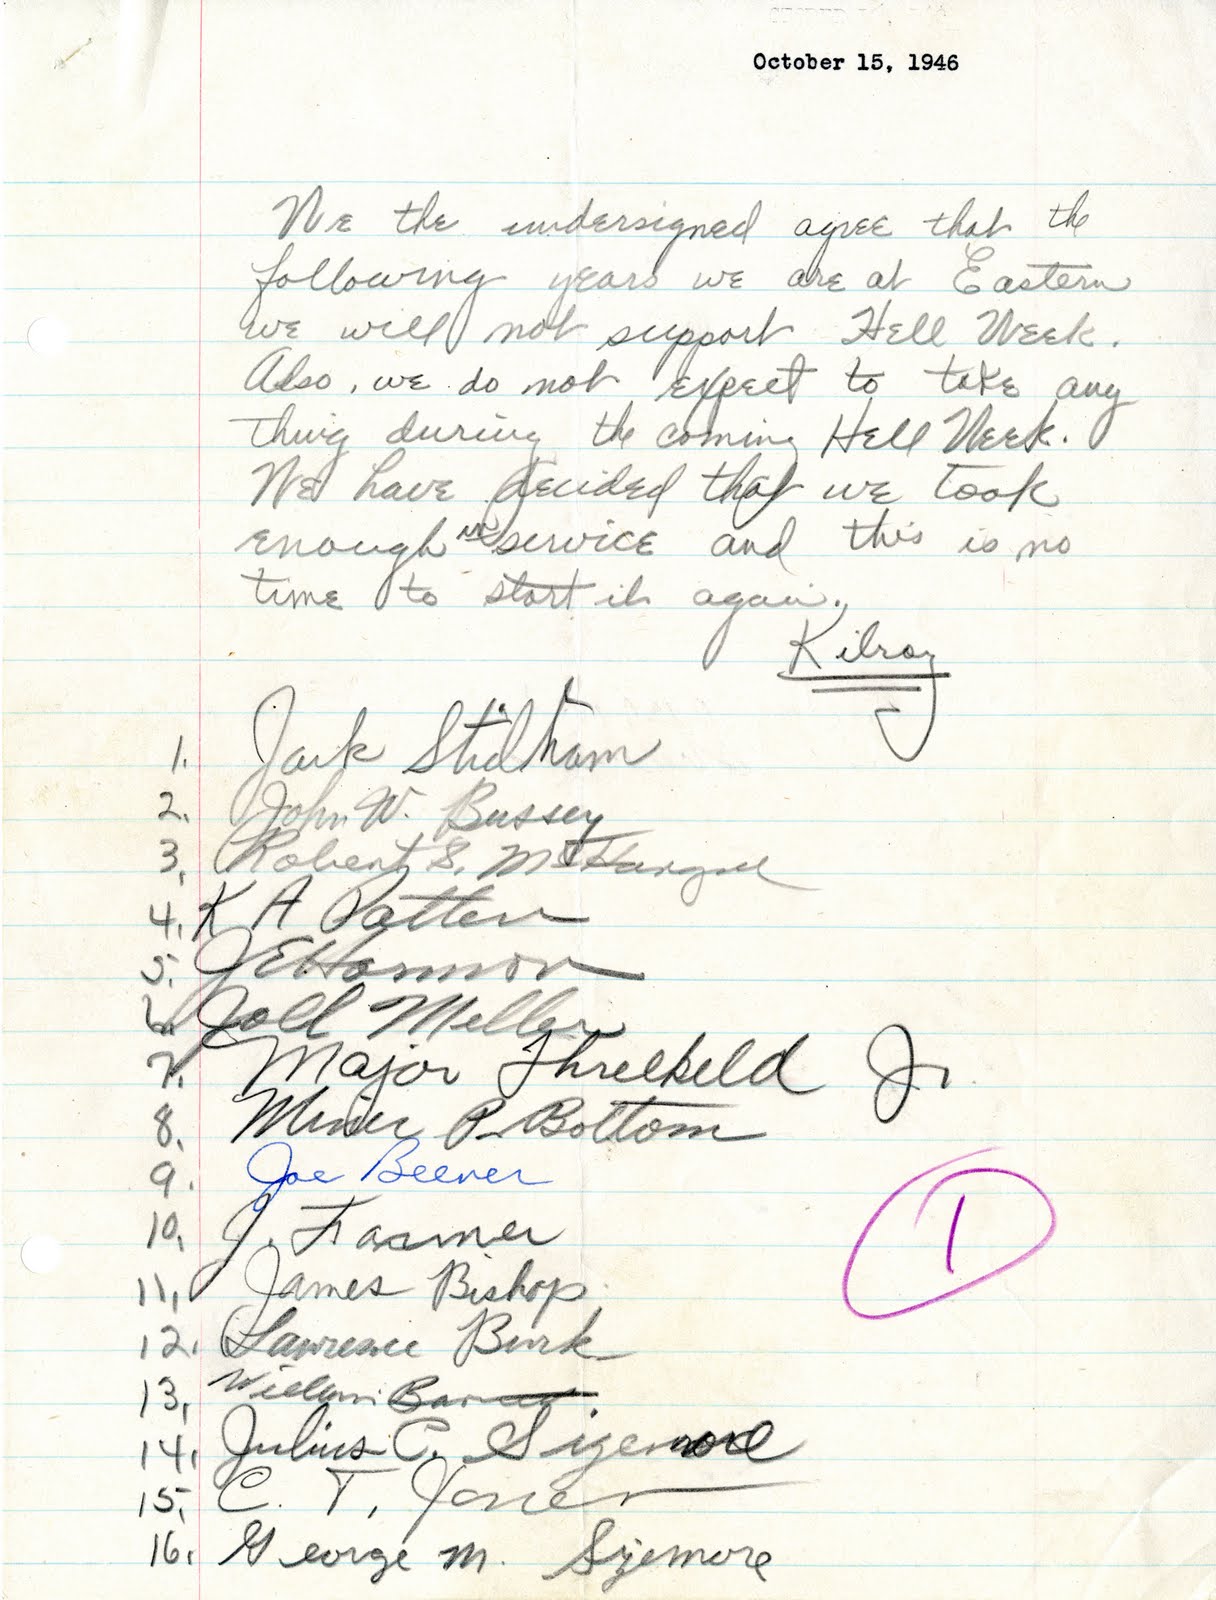 October 15, 1946
We the undersigned agree that the
following years we are at Eastern
we will not support Hell Week.
Also, we do not expect to take any
thing during the coming Hell Week.
We have decided that we took
enough in service and this is no
time to start it again.
Kilroy
1. Jack Stidham
2. John W. Bussey
3. Robert S. McHargue
4. K A Patten
5. J E Hannon
6.
7. Major Threlkeld Jr
8. P. Bottom
9. Joe Beever
10. J. Farmer
11. James Bishop
12. Lawrence Burk
13. William
14. Julius C. Sizemore
15. C. T. Jones
16. George M. Sizemore
1